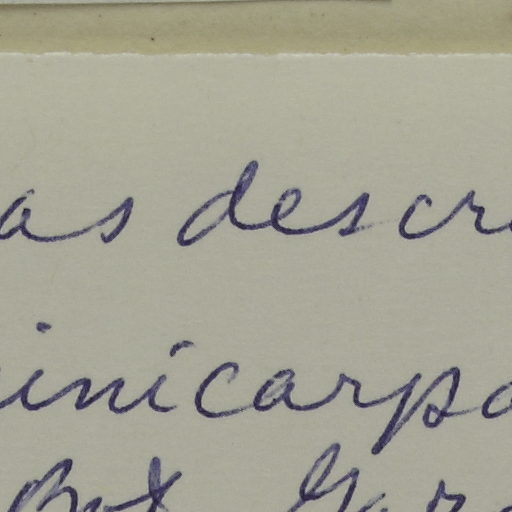 as descr
inicarpa
Bot. Gar